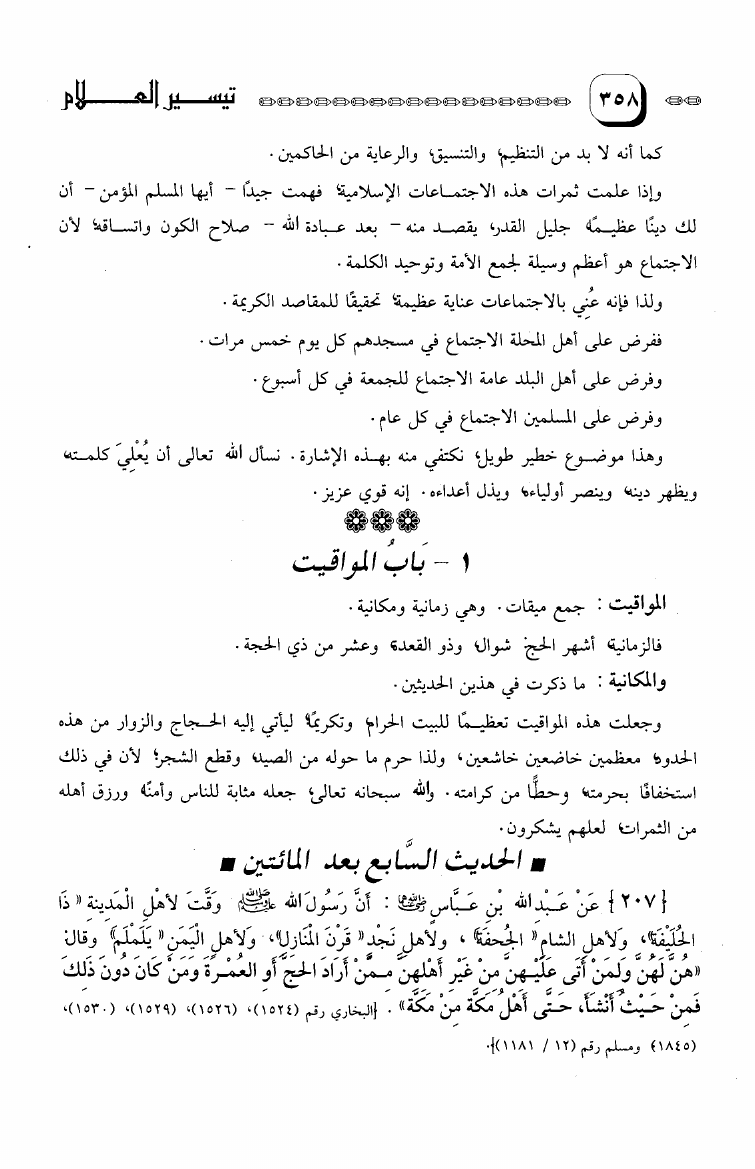 ٣٥٨ تيسير العلام
كما أنه لا بد من التنظيم، والتنسيق، والرعاية من الحاكمين.
وإذا علمت ثمرات هذه الاجتماعات الإسلامية؛ فهمت جيدًا - أيها المسلم المؤمن - أن
لك دينًا عظيمًا، جليل القدر، يقصد منه - بعد عبادة الله - صلاح الكون واتساقه؛ لأن
الاجتماع هو أعظم وسيلة لجمع الأمة وتوحيد الكلمة.
ولذا فإنه عُني بالاجتماعات عناية عظيمة؛ تحقيقًا للمقاصد الكريمة.
ففرض على أهل المحلة الاجتماع في مسجدهم كل يوم خمس مرات.
وفرض على أهل البلد عامة الاجتماع للجمعة في كل أسبوع.
وفرض على المسلمين الاجتماع في كل عام.
وهذا موضوع خطير طويل، نكتفي منه بهذه الإشارة. نسأل الله تعالى أن يُعْلِيَ كلمته،
ويظهر دينه، وينصر أولياءه، ويذل أعداءه. إنه قوي عزيز.
١ - بَابُ المواقيت
المواقيت: جمع ميقات. وهي زمانية ومكانية.
فالزمانية، أشهر الحج: شوال، وذو القعدة، وعشر من ذي الحجة.
والمكانية: ما ذكرت في هذين الحديثين.
وجعلت هذه المواقيت تعظيمًا للبيت الحرام، وتكريمًا؛ ليأتي إليه الحجاج والزوار من هذه
الحدود، معظمين خاضعين خاشعين، ولذا حرم ما حوله من الصيد، وقطع الشجر؛ لأن في ذلك
استخفافًا بحرمته، وحطًّا من كرامته. والله سبحانه تعالى، جعله مثابة للناس وأمنًا، ورزق أهله
من الثمرات؛ لعلهم يشكرون.
■ الحديث السَّابع بعد المائتين ■
{٢٠٧} عَنْ عَبْدِ الله بْنِ عَبَّاسٍ رضي الله عنهما: أنَّ رَسُولَ الله ﷺ وَقَّتَ لأهْلِ الْمَدِينَةِ «ذَا
الحُلَيْفَةِ»، وَلأهلِ الشام «الجُحفَةَ»، ولأهلِ نَجْدٍ «قَرْنَ المَنَازِلِ»، وَلأهلِ الْيَمَنِ «يَلَمْلَمَ» وقال:
«هُنَّ لَهُنَّ وَلمَنْ أتَى عَلَيْهِنَّ مِنْ غَيْرِ أهْلِهِنَّ مِمَّنْ أرَادَ الحَجَّ أو العُمْرَةَ وَمَنْ كَانَ دُونَ ذَلِكَ
فَمِنْ حَيْثُ أنْشَأَ، حَتَّى أهْلُ مَكَّةَ مِنْ مَكَّةَ». {البخاري رقم (١٥٢٤)، (١٥٢٦)، (١٥٢٩)، (١٥٣٠)،
(١٨٤٥) ومسلم رقم (١٢ / ١١٨١)}.